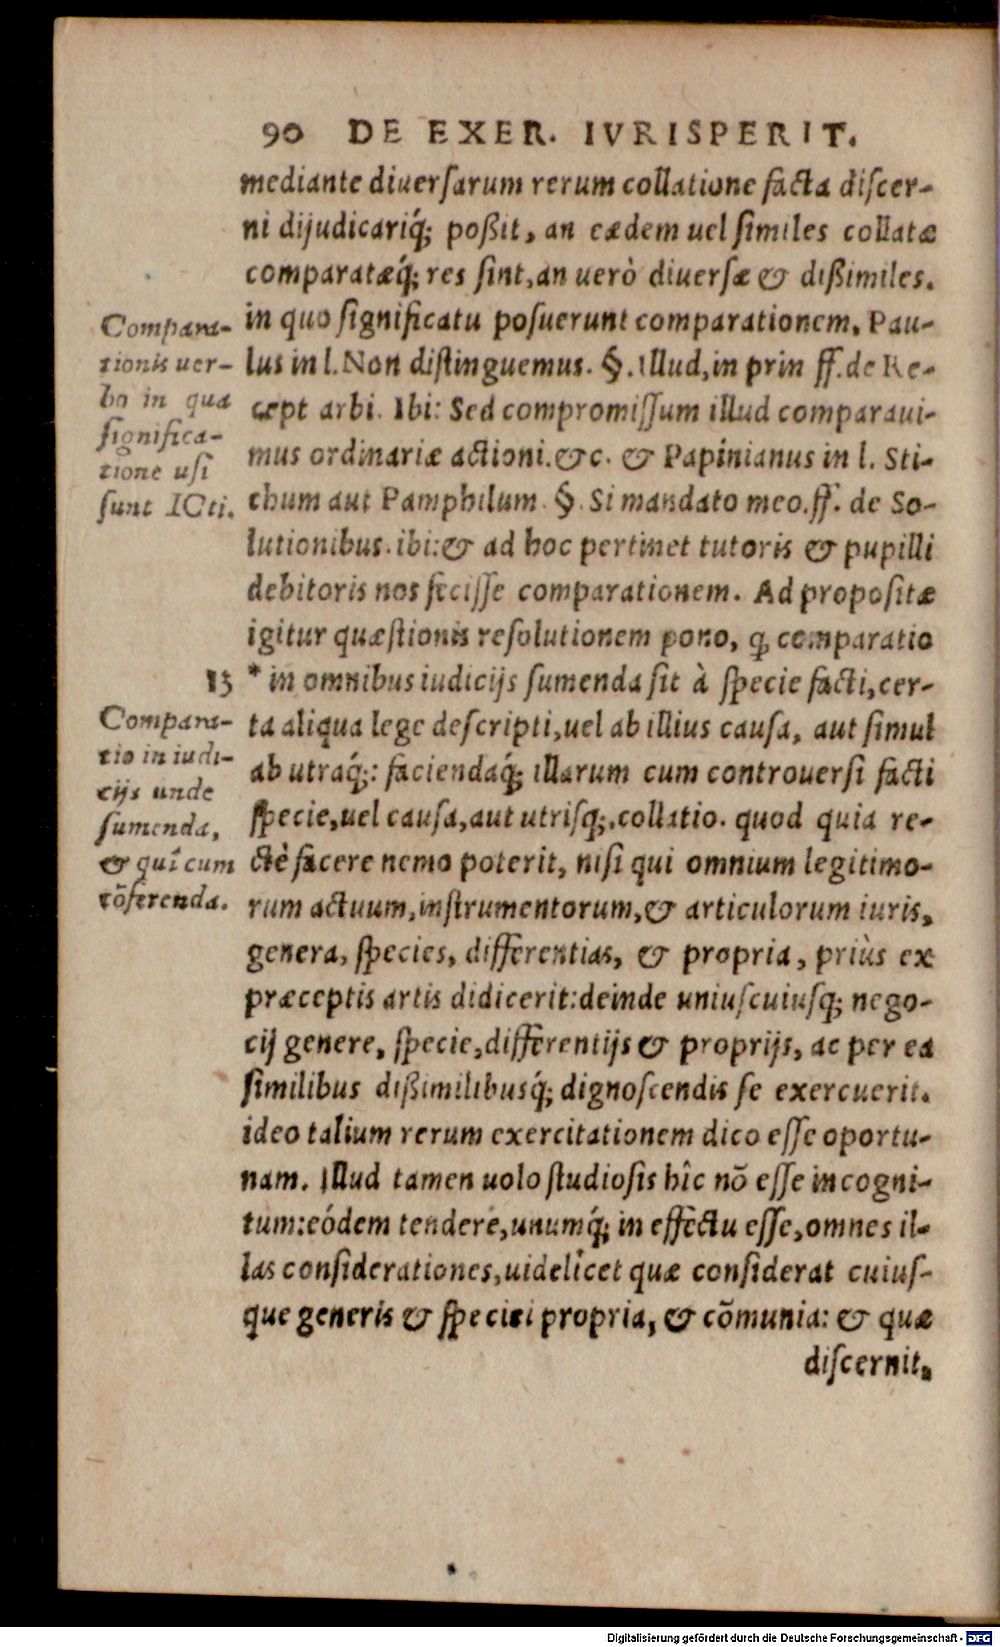 90 DE EXER. IVRISPERIT.
mediante diuerſarum rerum collatione facta diſcer-
ni dijudicariq́; poßit, an eædem uel ſimiles collatæ
comparatæq́; res ſint, an uerò diuerſæ & dißimiles.
in quo ſignificatu poſuerunt comparationem, Pau-
lus in l. Non diſtinguemus. §. Illud, in prin ff. de Re-
cept arbi. Ibi: Sed compromiſſum illud comparaui-
mus ordinariæ actioni. &c. & Papinianus in l. Sti-
chum aut Pamphilum. §. Si mandato meo. ff. de So-
lutionibus. ibi: & ad hoc pertinet tutoris & pupilli
debitoris nos feciſſe comparationem. Ad propoſitæ
igitur quæſtionis reſolutionem pono, ꝙ comparatio
* in omnibus iudicijs ſumenda ſit à ſpecie facti, cer-
ta aliqua lege deſcripti, uel ab illius cauſa, aut ſimul
ab utraq́;: faciendaq́; illarum cum controuerſi facti
ſpecie, uel cauſa, aut utriſq;, collatio. quod quia re-
ctè facere nemo poterit, niſi qui omnium legitimo-
rum actuum, inſtrumentorum, & articulorum iuris,
genera, ſpecies, differentias, & propria, priùs ex
præceptis artis didicerit: deinde uniuſcuiuſq; nego-
cij genere, ſpecie, differentijs & proprijs, ac per ea
ſimilibus dißimilibusq́; dignoſcendis ſe exercuerit.
ideo talium rerum exercitationem dico eſſe oportu-
nam. Illud tamen uolo ſtudioſis hîc nõ eſſe incogni-
tum: eódem tendere, unumq́; in effectu eſſe, omnes il-
las conſiderationes, uidelicet quæ conſiderat cuiuſ-
que generis & ſpeciei propria, & cõmunia: & quæ
diſcernit,
Compara-
tionis uer-
bo in qua
ſignifica-
tione uſi
ſunt ICti.
13
Compara-
tio in iudi-
cijs unde
ſumenda,
& quî cum
cõferenda.
Digitalisierung gefördert durch die Deutsche Forschungsgemeinschaft - DFG